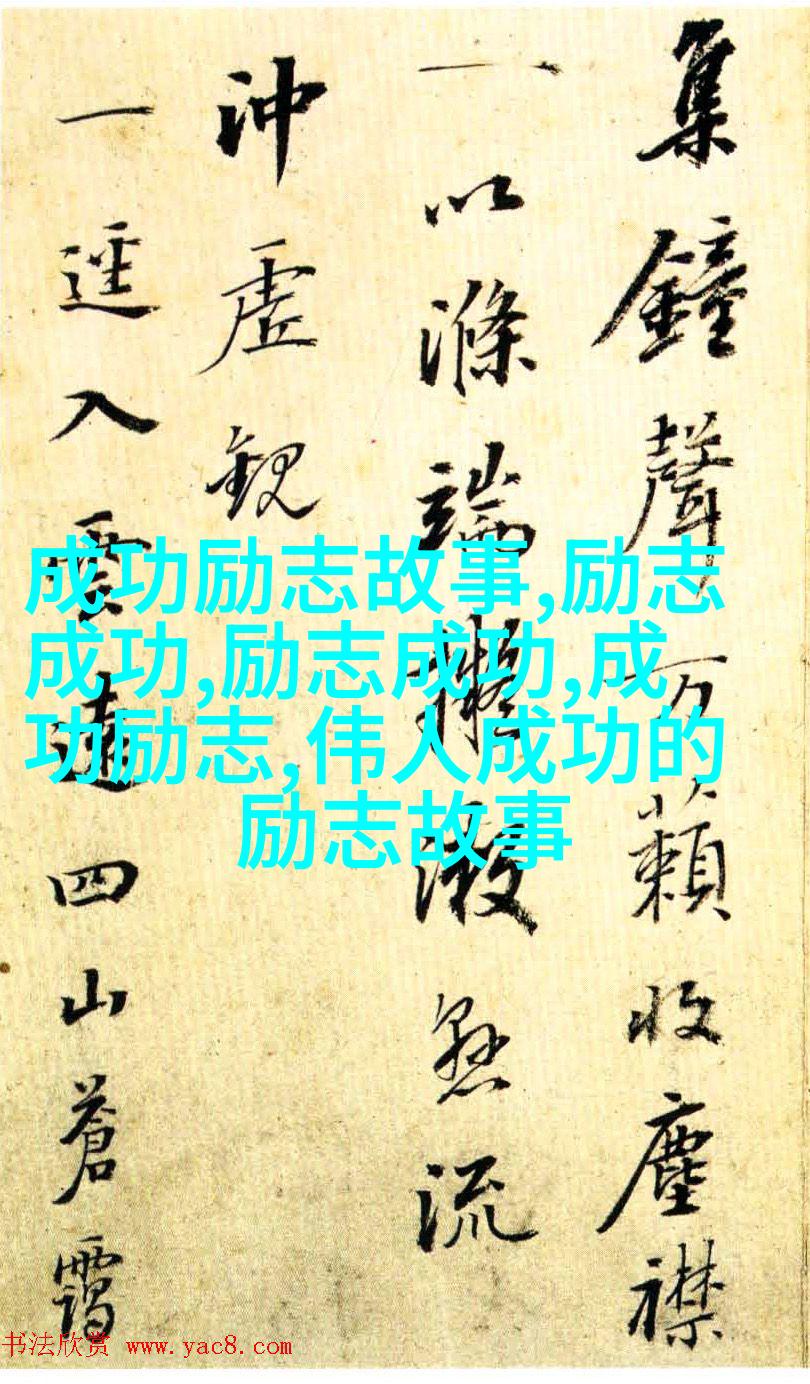 集鐘聲万籟收塵襟
一以滌端擬漱懸流
沖虛觀
一逕入雲遠四山蒼靄
成功励志故事,励志
成功,励志成功,成
功励志,伟人成功的
励志故事
书法欣赏 www.yac8.com